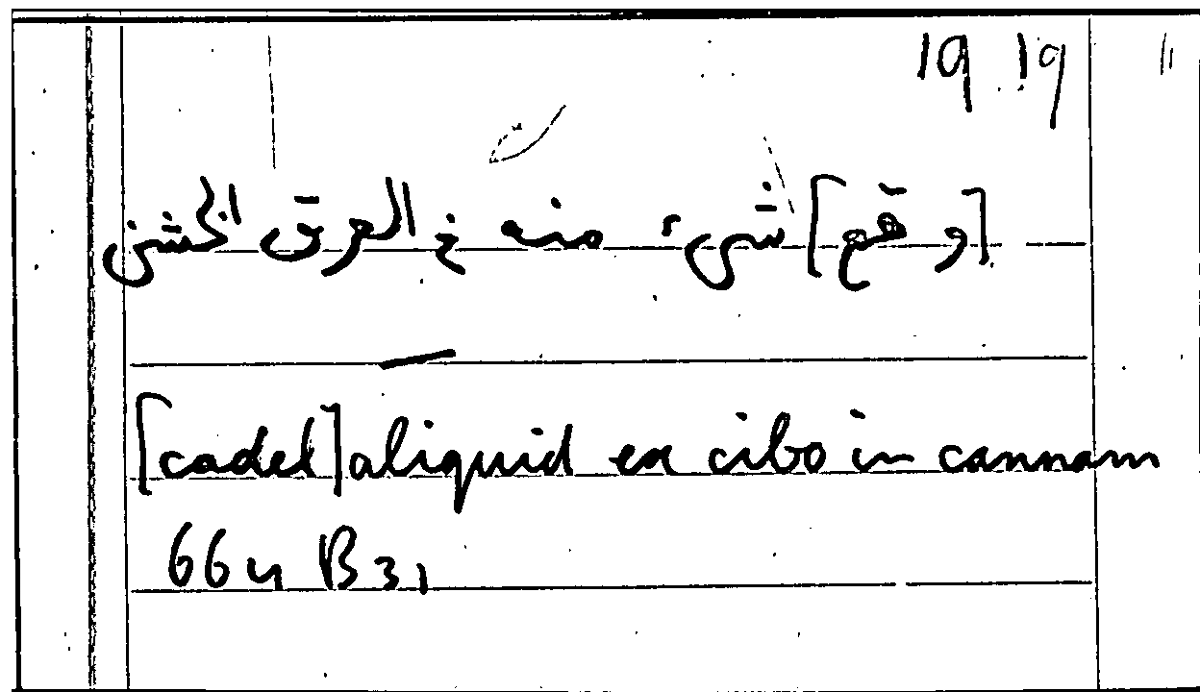 19 19
[وقع] شيء منه في العرق الخشن
[cadet] aliquid ex cibo in cannam
664 B 31